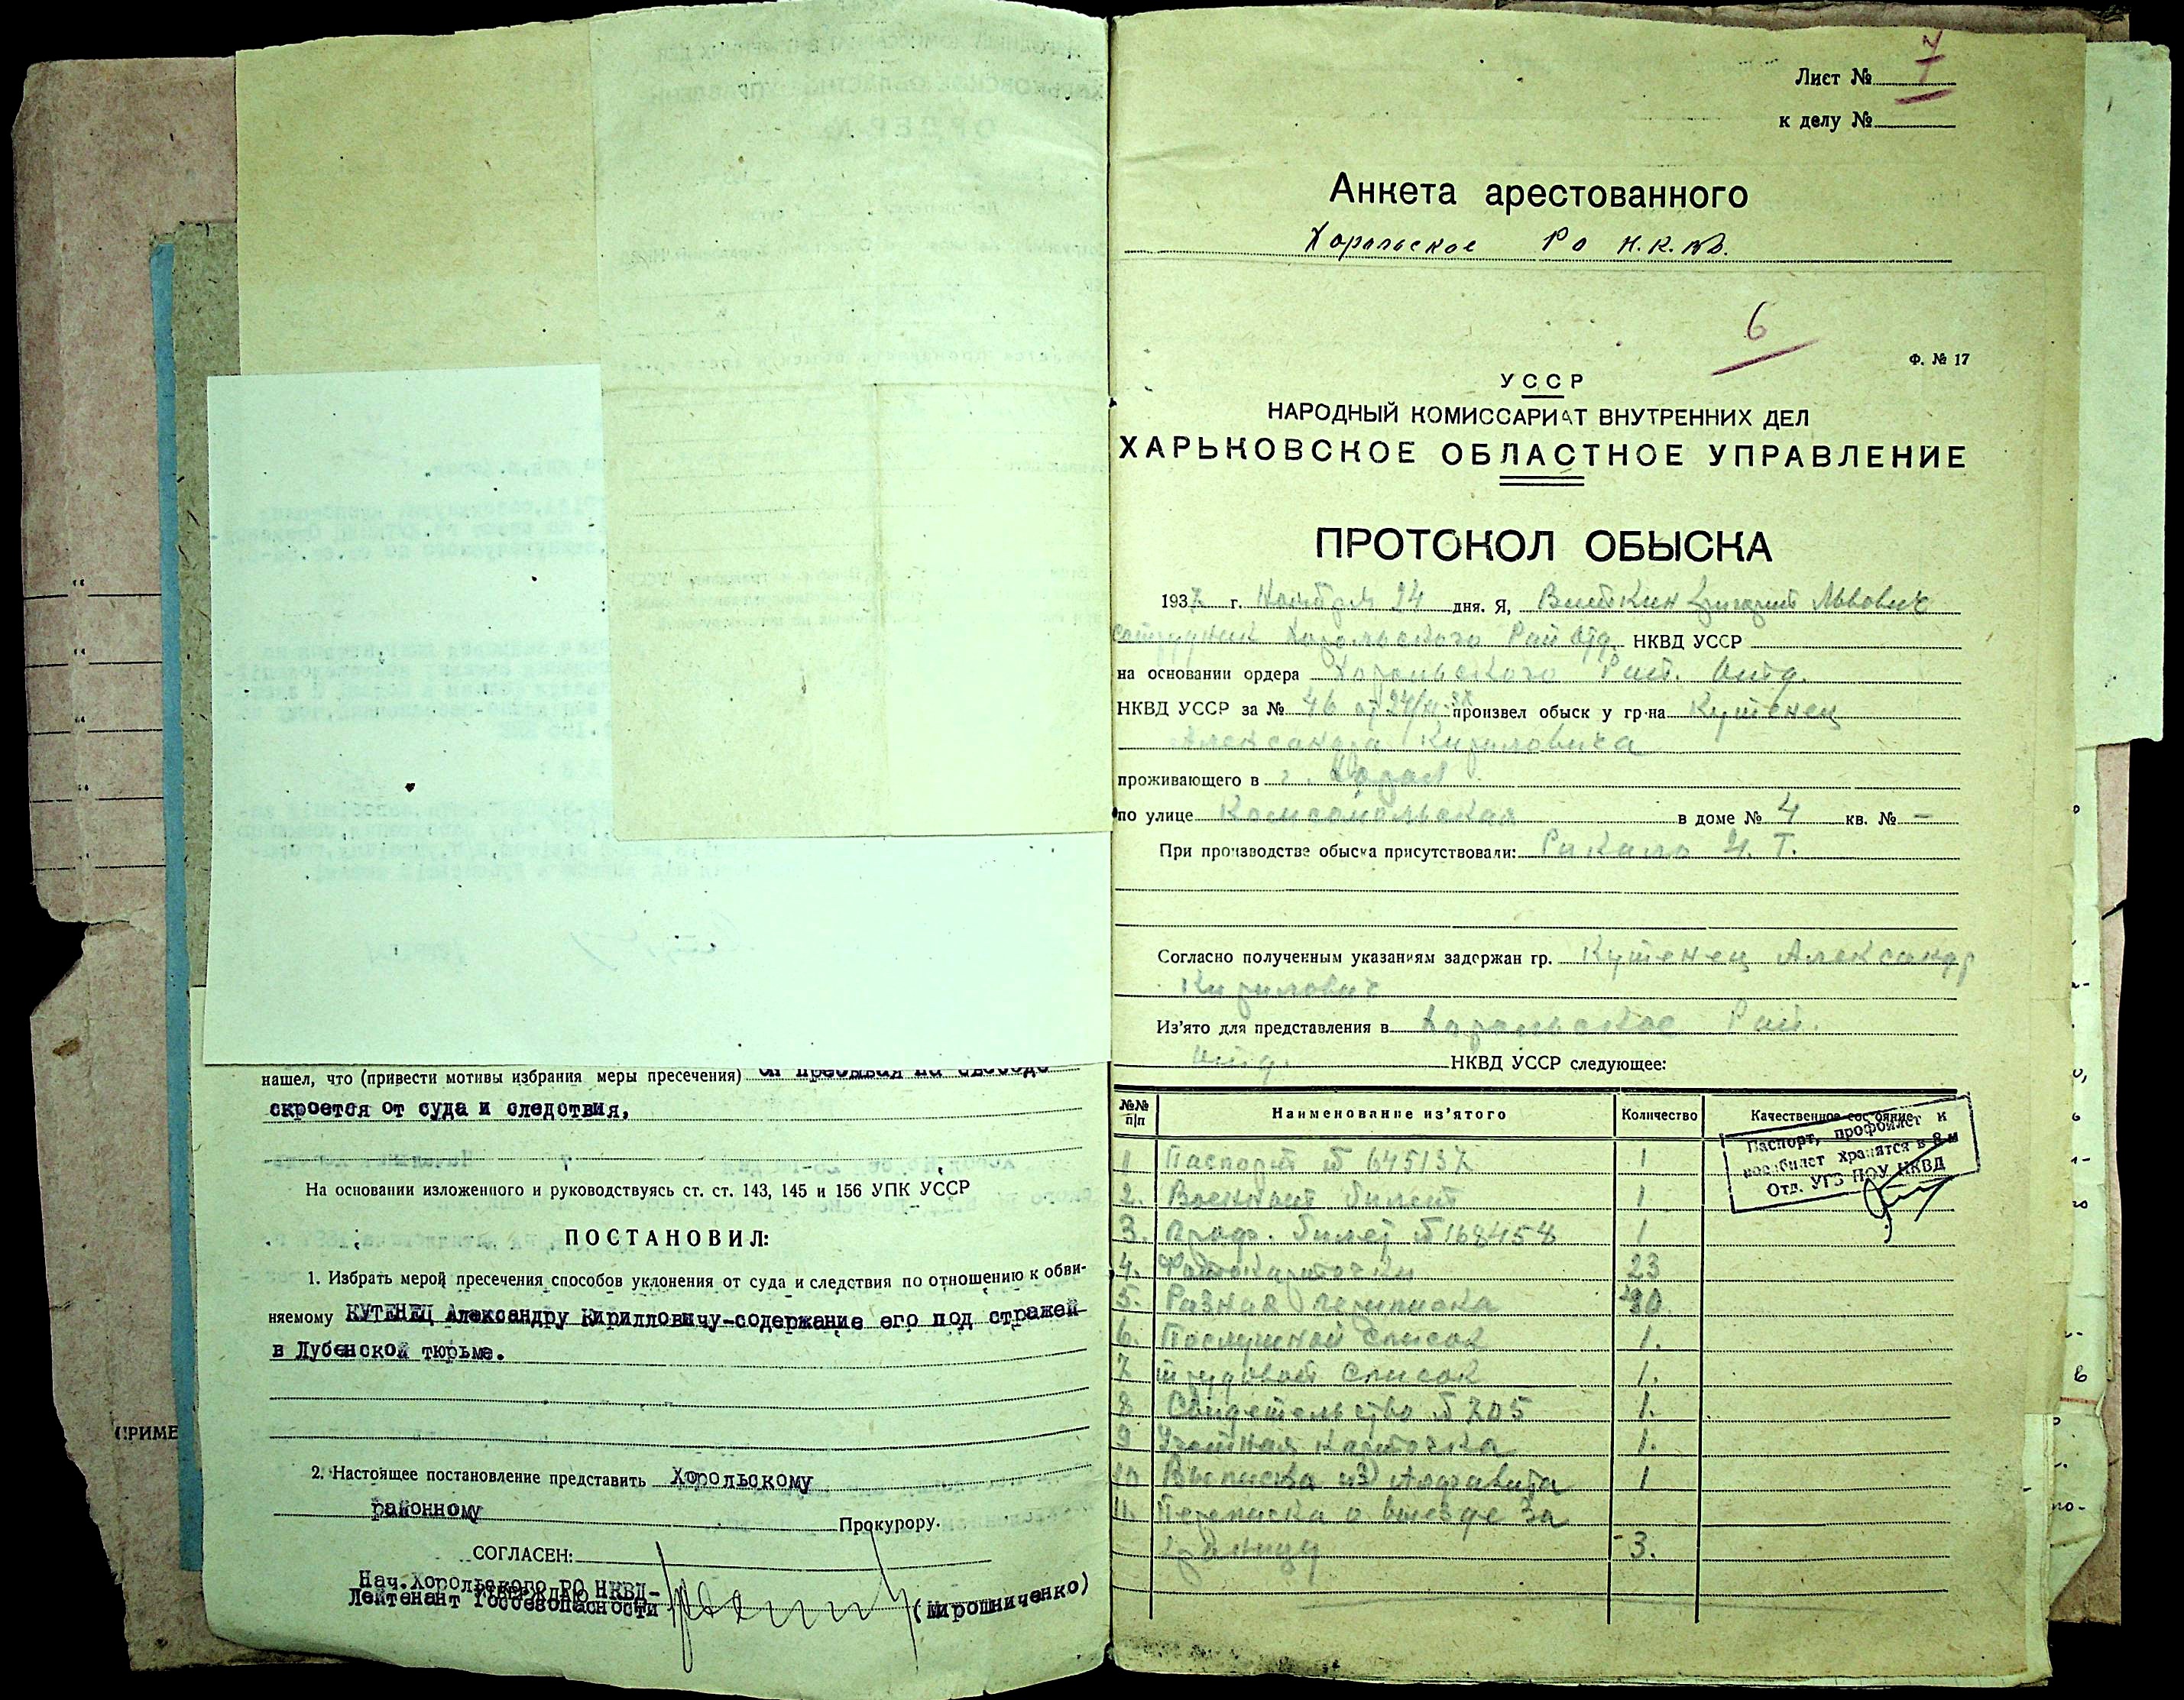 нашел, что (привести мотивы избрания меры пресечения) он пребывая на свободе
скроется от суда и следствия,
На основании изложенного и руководствуясь ст. ст. 143, 145 и 156 УПК УССР
ПОСТАНОВИЛ:
1. Избрать мерой пресечения способов уклонения от суда и следствия по отношению к обви-
няемому КУТЕНЕЦ Александру Кирилловичу-содержание его под стражей
в Лубенской тюрьме.
2. Настоящее постановление представить Хорольскому
районному Прокурору.
СОГЛАСЕН:
Нач.Хорольского РО НКВД-
УТВЕРЖДАЮ
Лейтенант Госбезопасности (Мирошниченко)
(ПРИМЕ
Лист № 7
к делу №
Анкета арестованного
Хорольское Ро Н.К.ВД.
6
Ф. № 17
УССР
НАРОДНЫЙ КОМИССАРИАТ ВНУТРЕННИХ ДЕЛ
ХАРЬКОВСКОЕ ОБЛАСТНОЕ УПРАВЛЕНИЕ
ПРОТОКОЛ ОБЫСКА
1937 г. Ноября 24 дня. Я, Виткин Григорий Львович
сотрудник Хорольского Рай отд. НКВД УССР
на основании ордера Хорольского Рай. Отд.
НКВД УССР за № 46 от 24/XI-37 произвел обыск у гр-на Кутенец
Александра Кириловича
проживающего в г. Хорол
по улице Комсомольская в доме № 4 кв. № –
При производстве обыска присутствовали: И. Т.
Согласно полученным указаниям задержан гр. Кутенец Александр
Кирилович
Из'ято для представления в Хорольское Рай.
Отд. НКВД УССР следующее:
№№ п/п Наименование из'ятого Количество Качественное состояние
Паспорт, профбилет и
военбилет хранятся в 8-м
Отд. УГБ ПОУ НКВД
1 Паспорт № 645137 1
2. Военный билет 1
3. Проф. билет № 168458 1
4. Фотокарточки 23
5. Разная переписка
6. Послужной список 1.
7 трудовой список 1.
8 Свидетельство № 705 1.
9 Учетная карточка 1.
10 Выписка из Алфавита 1
11. Переписка о выезде за
границу - 3.